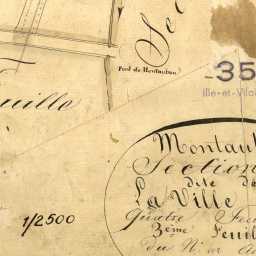 Se
Pont de Montauban
35
Ille-et-Vilai
euille
Montaub
Section
dite de
La Ville
Quatre Feu
3eme Feuill
du N.
1/2500